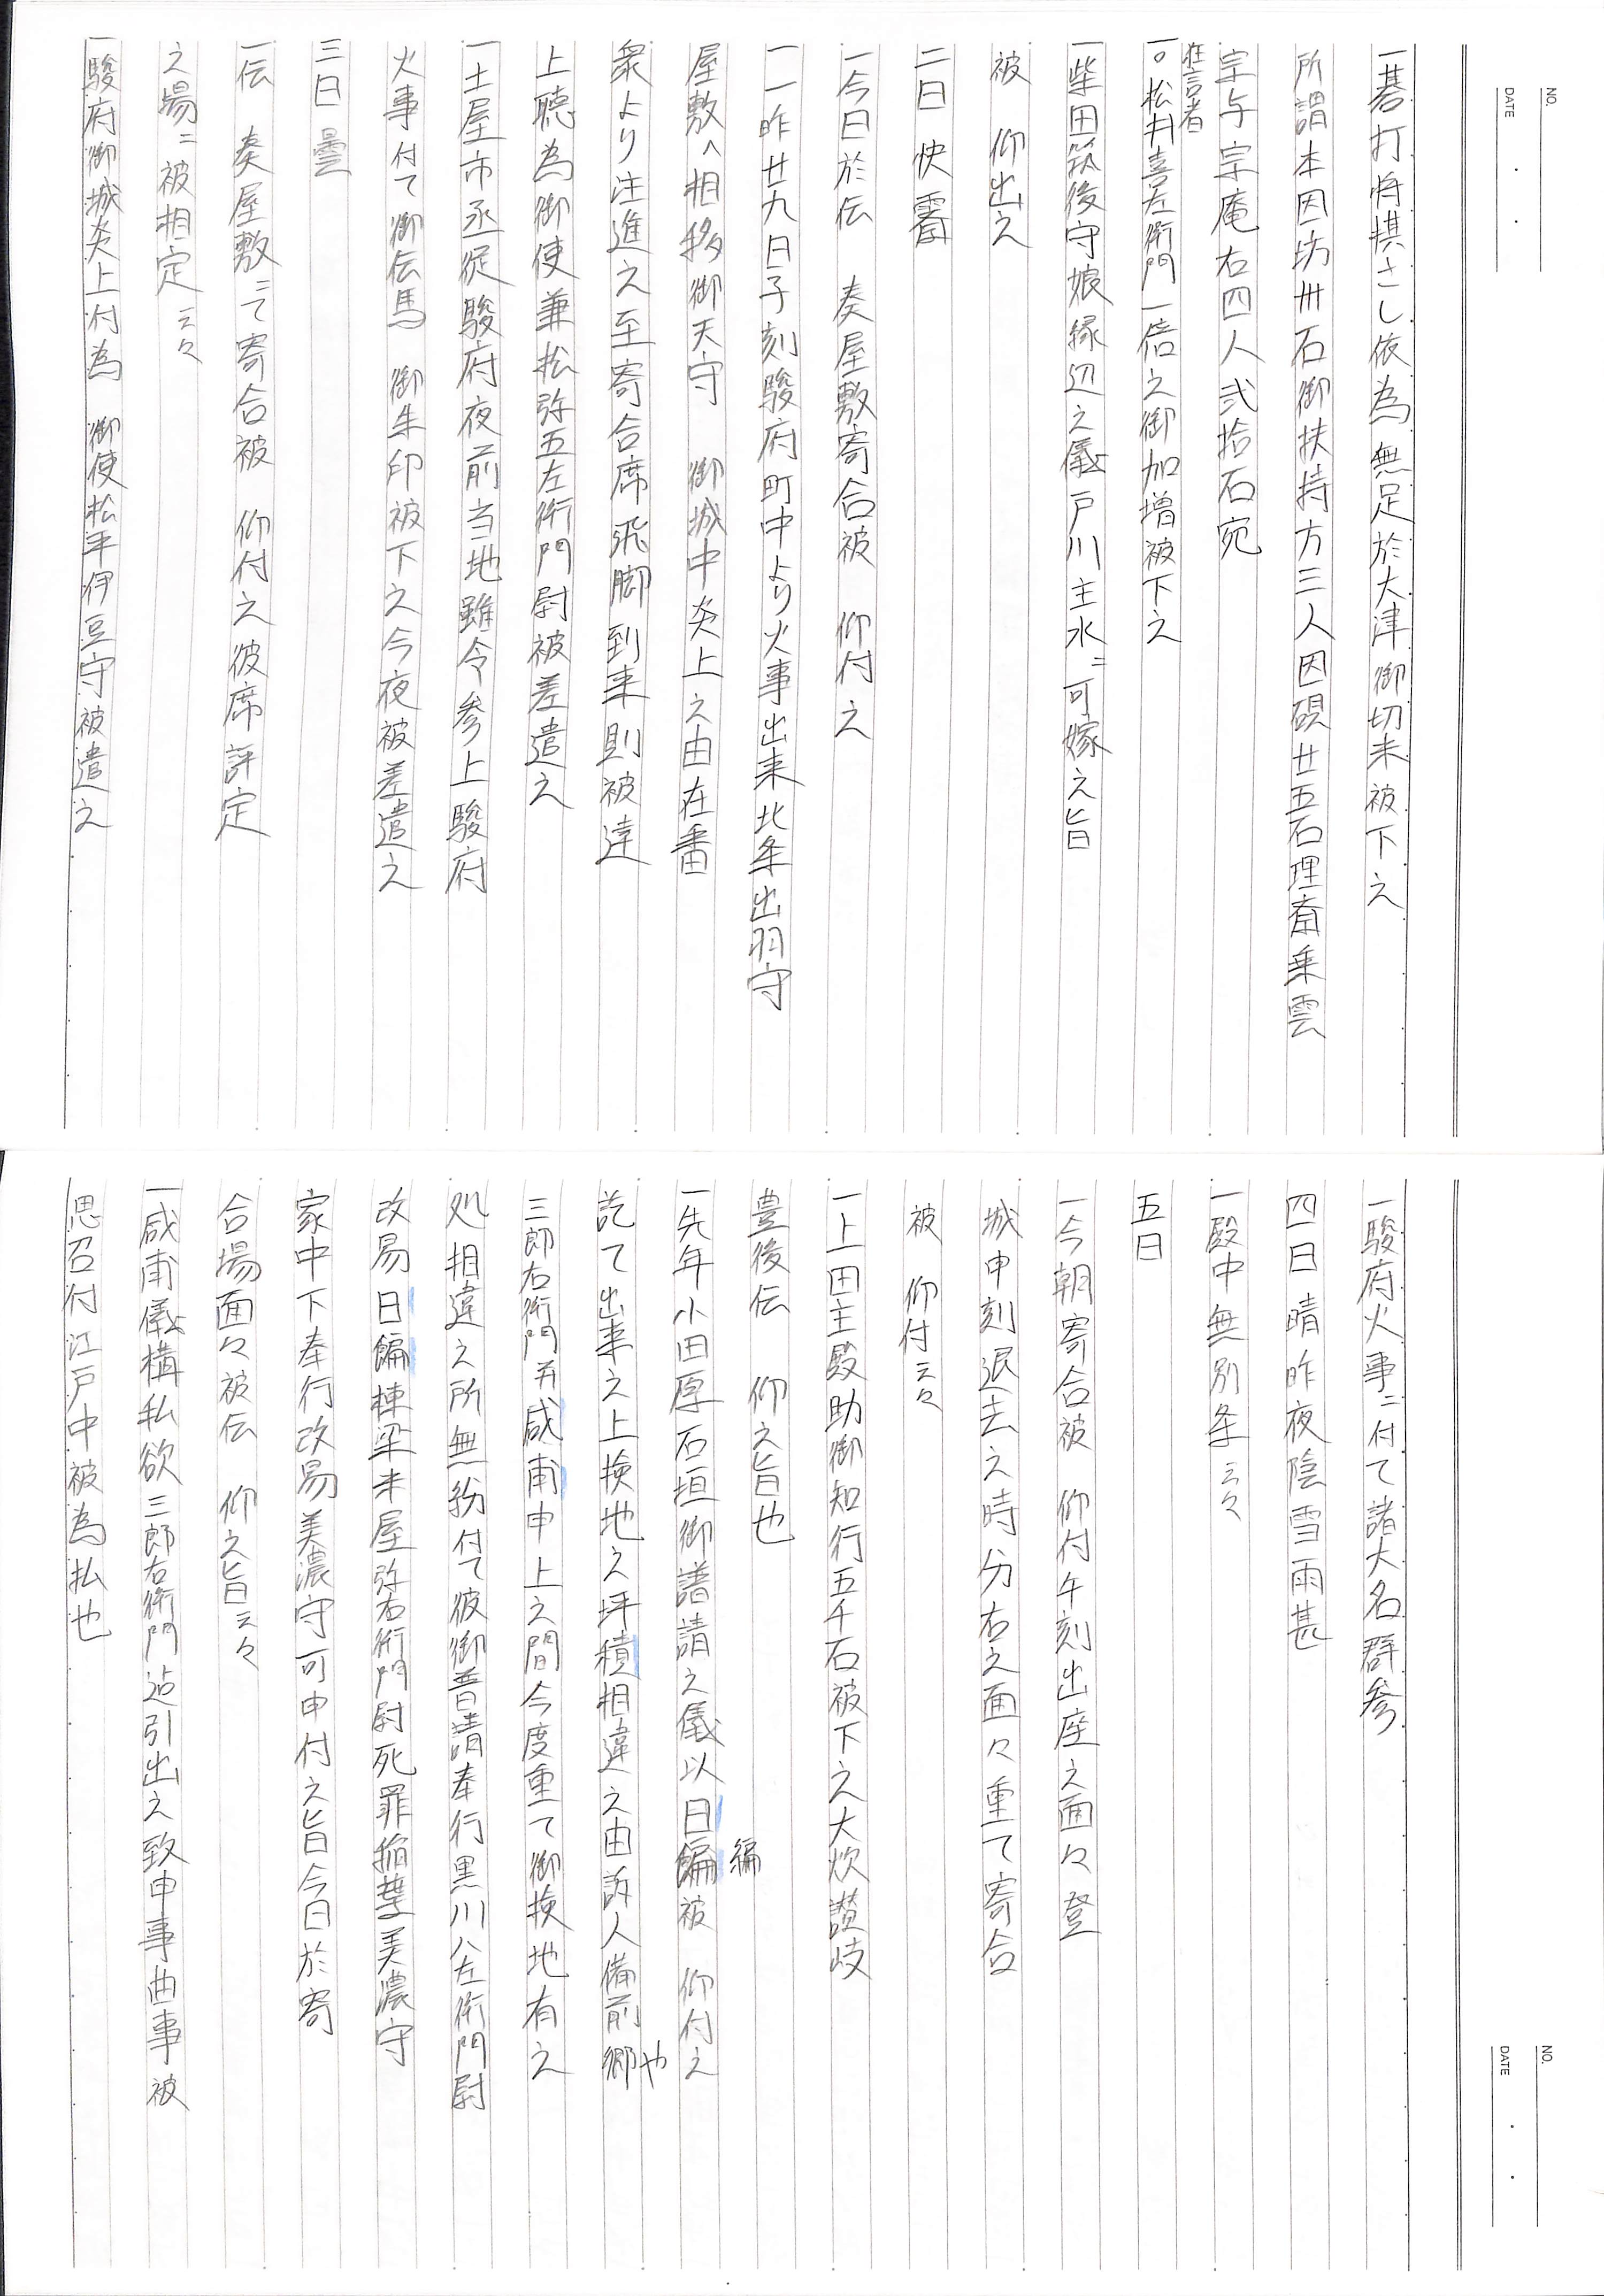 NO.
DATE
一碁打将棋さし依為無足於大津御切米被下之
所謂本因坊卅石御扶持方三人因碩廿五石理斎乗雲
宗与宗庵右四人弐拾石宛
狂言者
一〇松井喜左衛門一倍之御加増被下之
一柴田筑後守娘縁辺之儀戸川主水ニ可嫁之旨
被 仰出之
二日 快霽
一今日於伝 奏屋敷寄合被 仰付之
一一昨廿九日子刻駿府町中より火事出来北条出羽守
屋敷へ相移御天守 御城中炎上之由在番
衆より注進之至寄合席飛脚到来則被達
上聴為御使兼松弥五左衛門尉被差遣之
一土屋市丞従駿府夜前当地雖令参上駿府
火事付て御伝馬 御朱印被下之今夜被差遣之
三日 曇
一伝 奏屋敷ニて寄合被 仰付之彼席評定
之場ニ被相定云々
一駿府御城炎上付為 御使松平伊豆守被遣之
NO.
DATE
一駿府火事ニ付て諸大名群参
四日 晴昨夜陰雪雨甚
一殿中無別条云々
五日
一今朝寄合被 仰付午刻出座之面々登
城申刻退去之時分右之面々重て寄合
被 仰付云々
一上田主殿助御知行五千石被下之大炊讃岐
豊後伝 仰之旨也
一先年小田原石垣御譜請之儀以日編被 仰付之
編
訖て出来之上検地之坪積相違之由訴人備前郷
や
三郎右衛門并咸甫申上之間今度重て御検地有之
処相違之所無紛付て彼御普請奉行黒川八左衛門尉
改易日編棟梁米屋弥右衛門尉死罪稲葉美濃守
家中下奉行改易美濃守可申付之旨今日於寄
合場面々被伝 仰之旨云々
一咸甫儀構私欲三郎右衛門迠引出之致申事曲事被
思召付江戸中被為払也